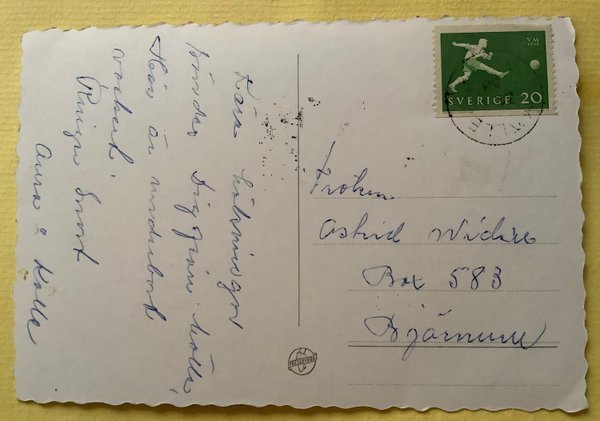 Kära hälsningar
sändes Dig från Mölle,
Här är underbart
vackert.
Ringer Snart
Anna & Kalle
V.M
1958
SVERIGE 20
Fröken
Astrid
Box 583
Bjärnum